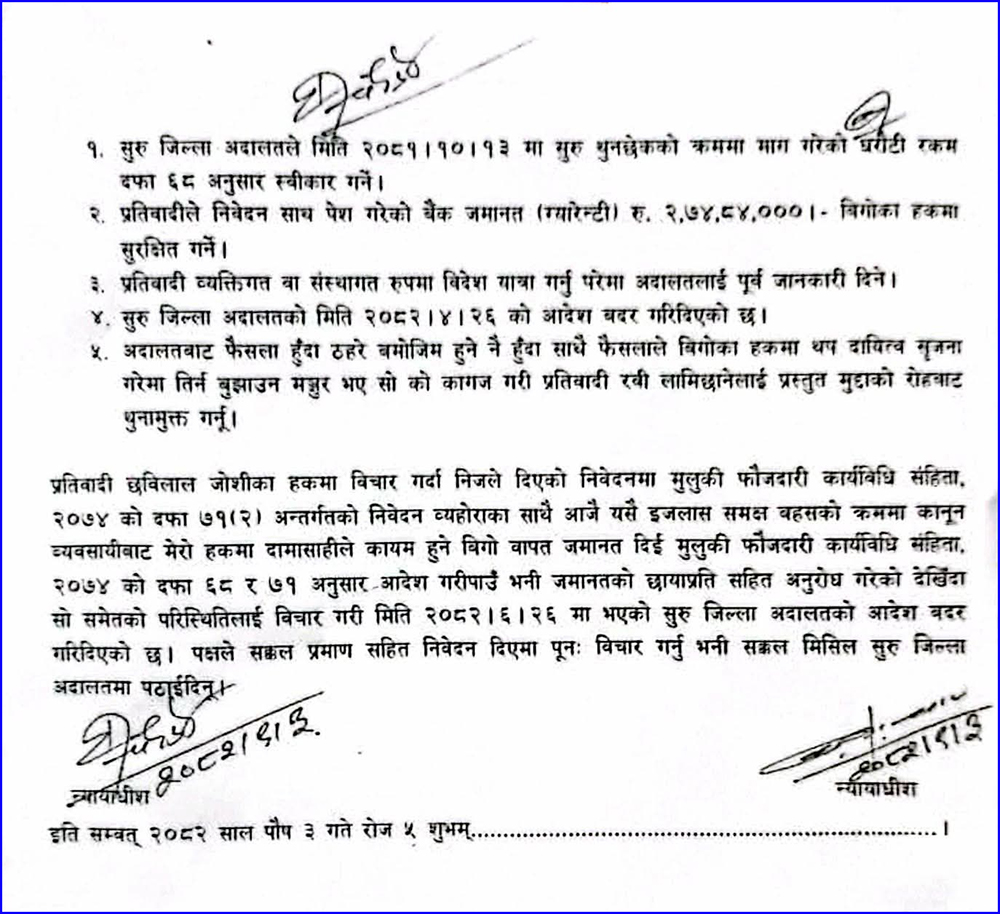 १. सुरु जिल्ला अदालतले मिति २०८१।१०।१३ मा सुरु थुनछेकको क्रममा माग गरेको धरौटी रकम
दफा ६८ अनुसार स्वीकार गर्ने।
२. प्रतिवादीले निवेदन साथ पेश गरेको बैंक जमानत (ग्यारेन्टी) रु. २,७४,८४,०००।- बिगोका हकमा
सुरक्षित गर्ने।
३. प्रतिवादी व्यक्तिगत वा संस्थागत रुपमा विदेश यात्रा गर्नु परेमा अदालतलाई पूर्व जानकारी दिने।
४. सुरु जिल्ला अदालतको मिति २०८२।४।२६ को आदेश बदर गरिदिएको छ।
५. अदालतबाट फैसला हुँदा ठहरे बमोजिम हुने नै हुँदा साथै फैसलाले बिगोका हकमा थप दायित्व सृजना
गरेमा तिर्न बुझाउन मञ्जुर भए सो को कागज गरी प्रतिवादी रवी लामिछानेलाई प्रस्तुत मुद्दाको रोहबाट
थुनामुक्त गर्नू।
प्रतिवादी छविलाल जोशीका हकमा विचार गर्दा निजले दिएको निवेदनमा मुलुकी फौजदारी कार्यविधि संहिता,
२०७४ को दफा ७१(२) अन्तर्गतको निवेदन व्यहोराका साथै आजै यसै इजलास समक्ष बहसको क्रममा कानून
व्यवसायीबाट मेरो हकमा दामासाहीले कायम हुने बिगो वापत जमानत दिई मुलुकी फौजदारी कार्यविधि संहिता,
२०७४ को दफा ६८ र ७१ अनुसार आदेश गरीपाउँ भनी जमानतको छायाप्रति सहित अनुरोध गरेको देखिँदा
सो समेतको परिस्थितिलाई विचार गरी मिति २०८२।६।२६ मा भएको सुरु जिल्ला अदालतको आदेश बदर
गरिदिएको छ। पक्षले सक्कल प्रमाण सहित निवेदन दिएमा पूनः विचार गर्नु भनी सक्कल मिसिल सुरु जिल्ला
अदालतमा पठाईदिनू।
२०८२।९।३. २०८२।९।३
न्यायाधीश न्यायाधीश
इति सम्वत् २०८२ साल पौष ३ गते रोज ५ शुभम्..........................................................।